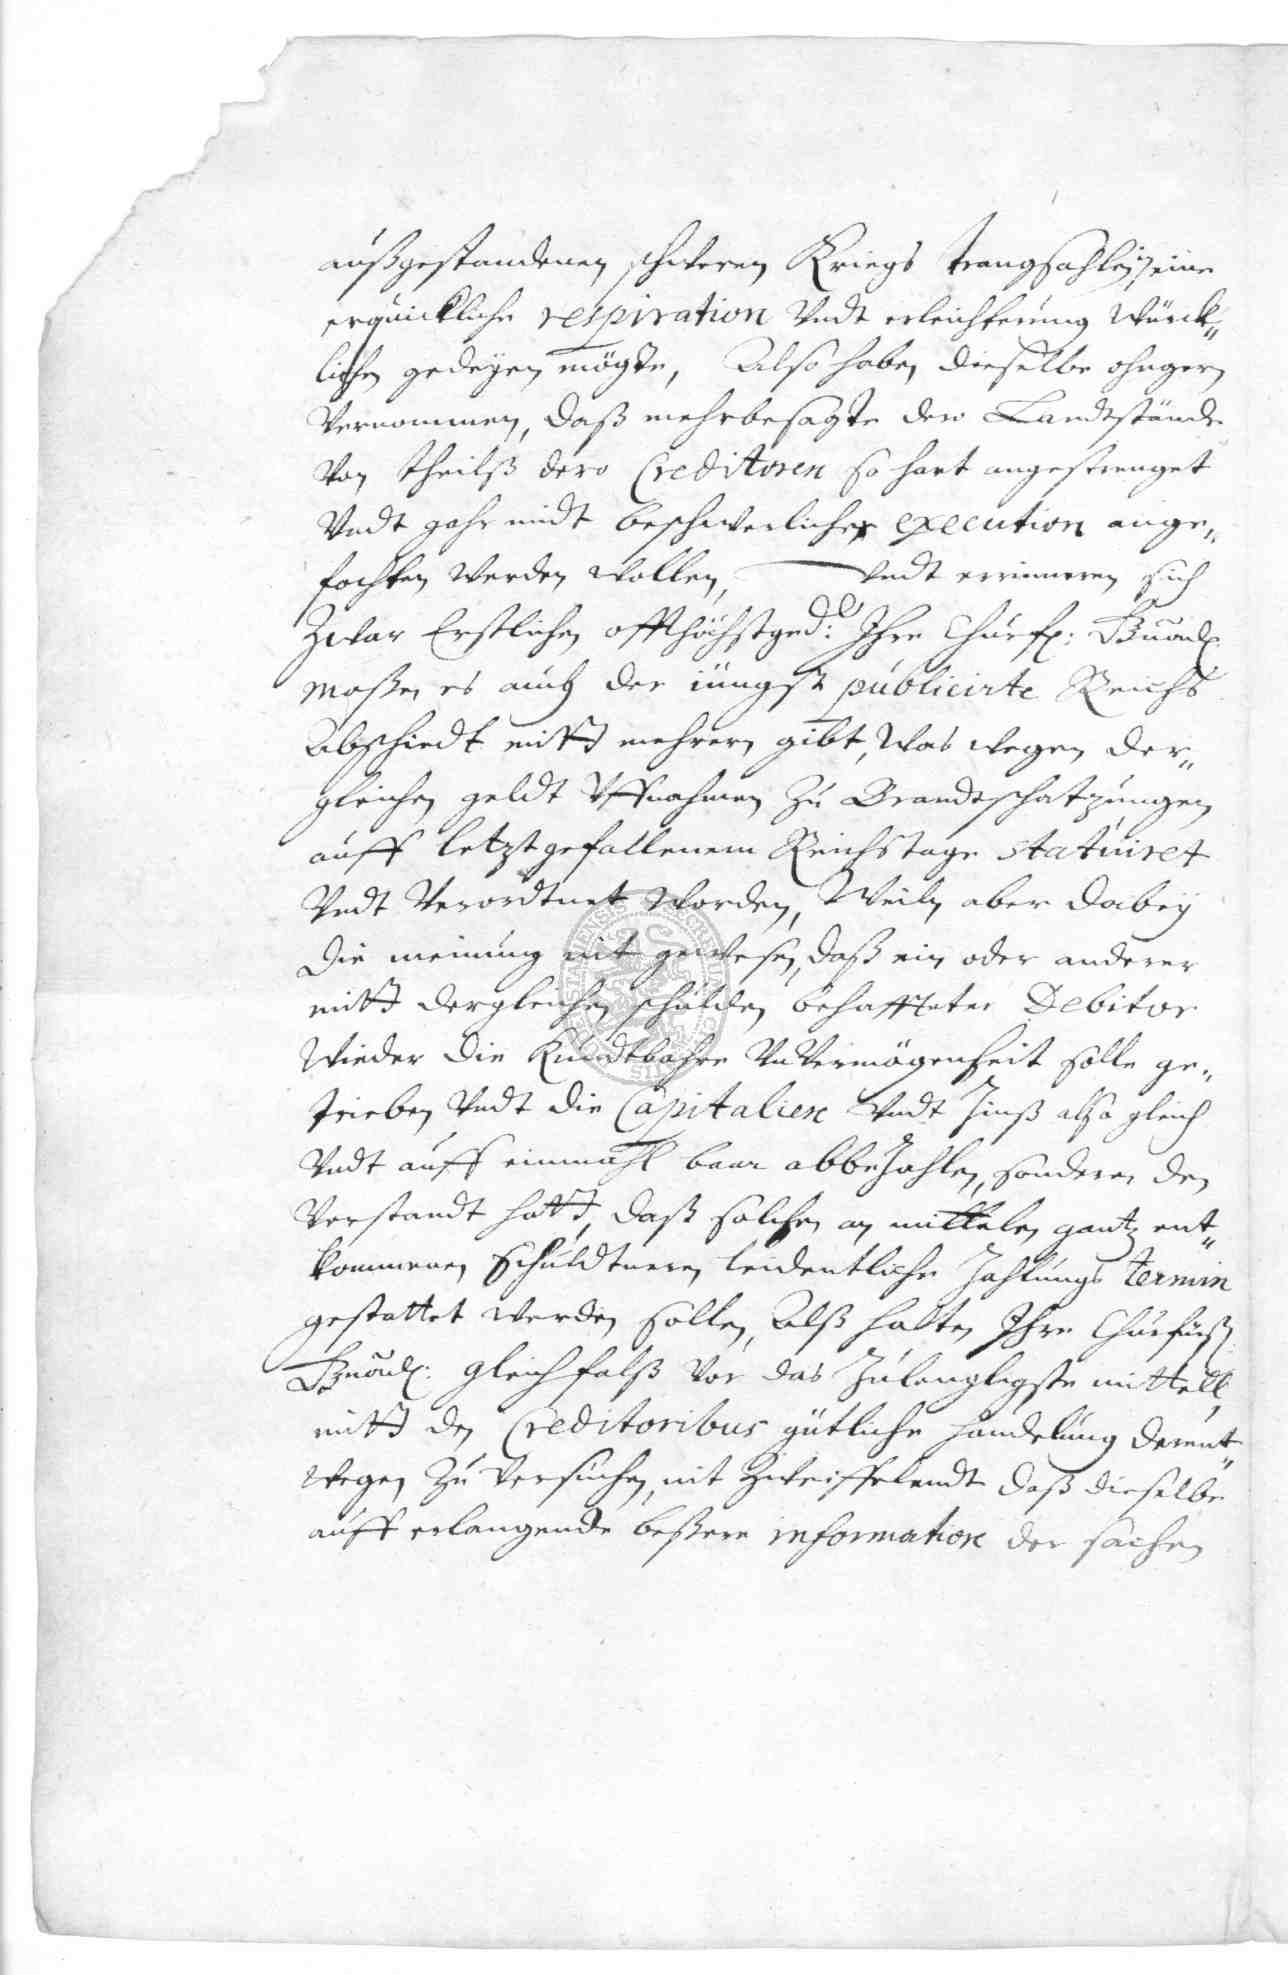 außgestandenen schweren Kriegs trangsahlen, eine
erquickliche respiration Undt erleichterung würck„
lichen gedeyen mögte, Also haben dieselbe ohngern
Vernommen, daß mehrbesagte dero Landtstände
Von theilß dero Creditoren so hart angestrenget
Undt gahr midt beschwerlicher execution ange„
fochten werden wollen, Undt erinneren sich
Zwar Erstlichen offthöchstged: Ihre Churf:
maßen es auch der jüngst publicirte Reichs
Abschiedt mitt mehrern gibt, was wegen der„
gleichen geldt Uffnahmen zu Brandtschatzungen
auff letztgehaltenem Reichstage statuiret
Undt Verordtnet worden, Weiln aber dabey
die meinung nit gewesen, daß ein oder anderer
mitt dergleichen schulden behaffteter Debitor
wieder die Kundtbahre UnVermögenheit solle ge„
trieben Undt die Capitalien Undt Zinß also gleich
Undt auff einmahl baar abbezahlen, sonderen den
Verstandt hatt, daß solchen an mittelen gantz ent„
kommenen Schuldtneren leidentliche Zahlungs termin
gestattet werden sollen, Alß halten Ihre Churfürst:
gleichfalß Vor das Zulenglichste mittell,
mitt den Creditoribus gütliche handelung derent„
wegen zu Versuchen, nit Zweiffelendt daß dieselbe
auff erlangende beßere information der sachen